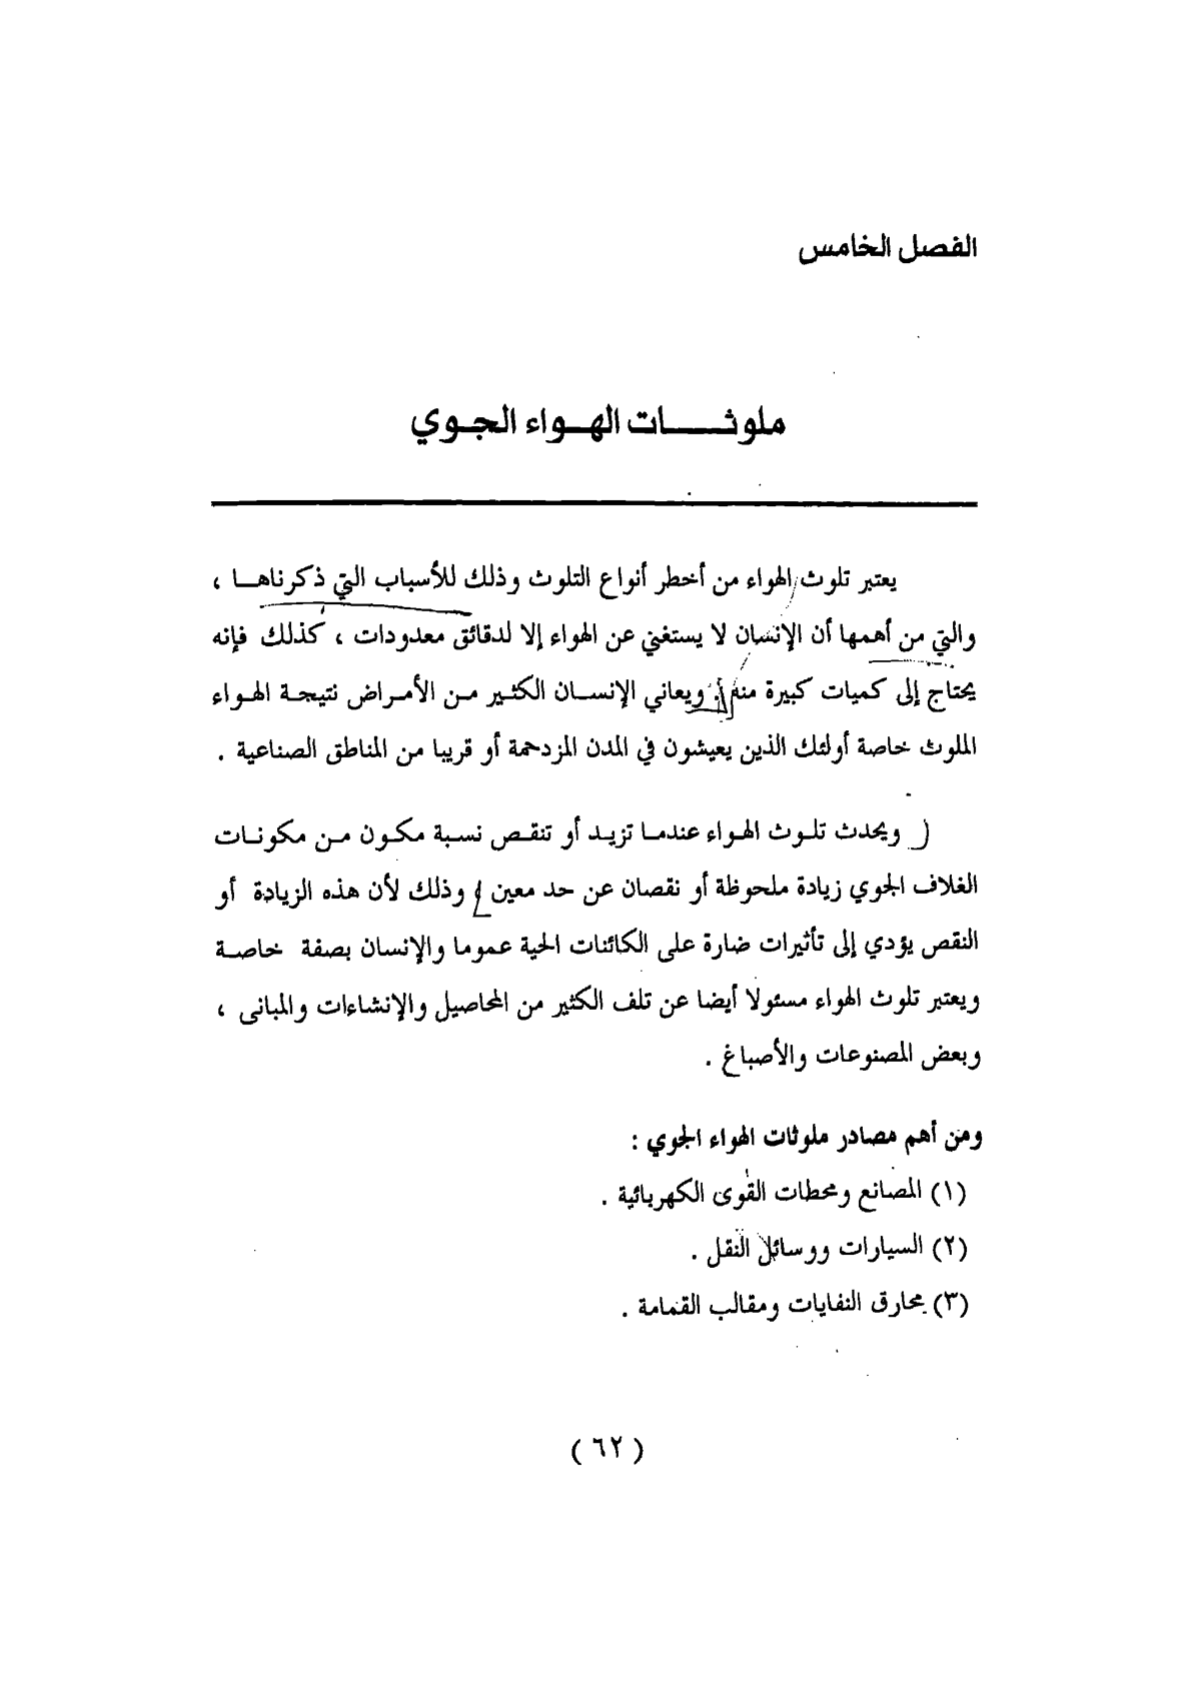 الفصل الخامس
ملوثات الهواء الجوي
يعتبر تلوث الهواء من أخطر أنواع التلوث وذلك للأسباب التي ذكرناها ،
والتي من أهمها أن الإنسان لا يستغني عن الهواء إلا لدقائق معدودات ، كذلك فإنه
يحتاج إلى كميات كبيرة منه . ويعاني الإنسان الكثير من الأمراض نتيجة الهواء
الملوث خاصة أولئك الذين يعيشون في المدن المزدحمة أو قريبا من المناطق الصناعية .
ويحدث تلوث الهواء عندما تزيد أو تنقص نسبة مكون من مكونات
الغلاف الجوي زيادة ملحوظة أو نقصان عن حد معين وذلك لأن هذه الزيادة أو
النقص يؤدي إلى تأثيرات ضارة على الكائنات الحية عموما والإنسان بصفة خاصة
ويعتبر تلوث الهواء مسئولا أيضا عن تلف الكثير من المحاصيل والإنشاءات والمبانى ،
وبعض المصنوعات والأصباغ .
ومن أهم مصادر ملوثات الهواء الجوي :
(١) المصانع ومحطات القوى الكهربائية .
(٢) السيارات ووسائل النقل .
(٣) محارق النفايات ومقالب القمامة .
( ٦٢ )